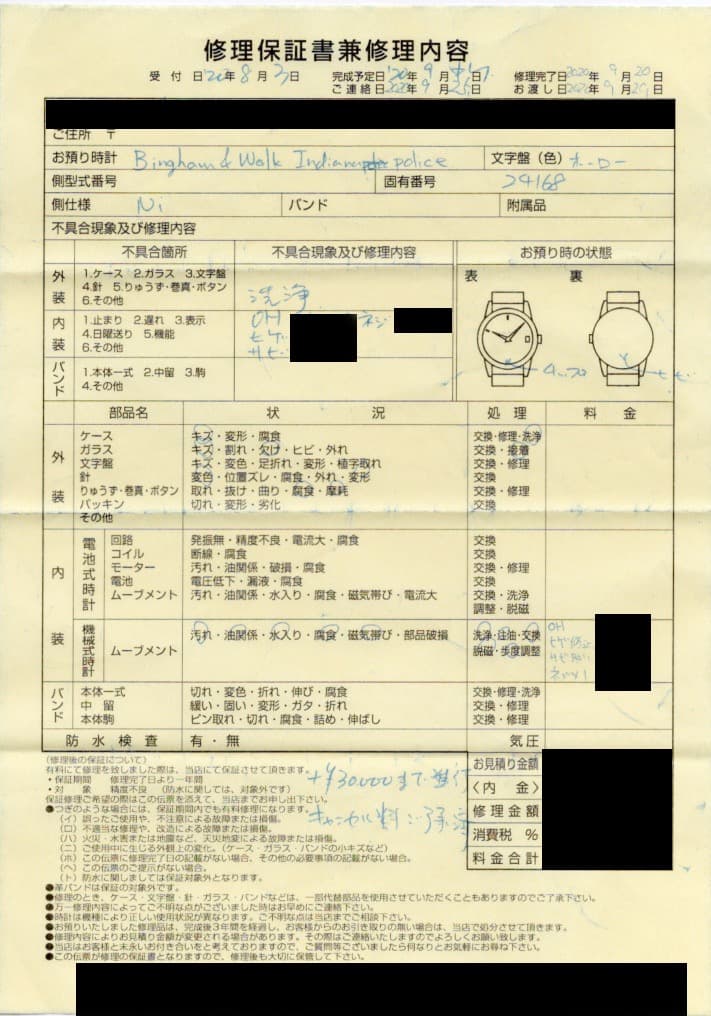 修理保証書兼修理内容
受付日'20年8月3日 完成予定日'20年9月中旬 修理完了日2020年9月20日
ご連絡日2020年9月25日 お渡し日2020年9月29日
ご住所 〒
お預り時計 Bingham & Walk Indiana police 文字盤(色) ホーロー
側型式番号 固有番号 24168
側仕様 Ni バンド 附属品
不具合現象及び修理内容
不具合箇所 不具合現象及び修理内容 お預り時の状態
外装 1.ケース 2.ガラス 3.文字盤
4.針 5.りゅうず・巻真・ボタン
6.その他
洗浄
表 裏
内装 1.止まり 2.遅れ 3.表示
4.日曜送り 5.機能
6.その他
OH ネジ
ヒゲ
サビ
バンド 1.本体一式 2.中留 3.駒
4.その他
部品名 状況 処理 料金
外装
ケース キズ・変形・腐食 交換・修理・洗浄
ガラス キズ・割れ・欠け・ヒビ・外れ 交換・接着
文字盤 キズ・変色・足折れ・変形・植字取れ 交換・修理
針 変色・位置ズレ・腐食・外れ・変形 交換
りゅうず・巻真・ボタン 取れ・抜け・曲り・腐食・摩耗 交換・修理
パッキン 切れ・変形・劣化 交換
その他
内装
電池式時計
回路 発振無・精度不良・電流大・腐食 交換
コイル 断線・腐食 交換
モーター 汚れ・油関係・破損・腐食 交換・修理
電池 電圧低下・漏液・腐食 交換
ムーブメント 汚れ・油関係・水入り・腐食・磁気帯び・電流大 交換・洗浄
調整・脱磁
機械式時計
ムーブメント 汚れ・油関係・水入り・腐食・磁気帯び・部品破損 洗浄・注油・交換
脱磁・歩度調整
OH
ヒゲ修正
サビ取り
ネジ
バンド
本体一式 切れ・変色・折れ・伸び・腐食 交換・修理・洗浄
中留 緩い・固い・変形・ガタ・折れ 交換・修理
本体駒 ピン取れ・切れ・腐食・詰め・伸ばし 交換・修理
防水検査 有・無 気圧
(修理後の保証について)
有料にて修理を致しました際は、当店にて保証させて頂きます。
・保証期間 修理完了日より一年間
・対象 精度不良 (防水に関しては、対象外です)
保証修理ご希望の際はこの伝票を添えて、当店までお申し出下さい。
●つぎのような場合には、保証期間内でも有料修理になります。
(イ)誤ったご使用や、不注意による故障または損傷。
(ロ)不適当な修理や、改造による故障または損傷。
(ハ)火災・水害または地震など、天災地変による故障または損傷。
(ニ)ご使用中に生じる外観上の変化。(ケース・ガラス・バンドの小キズなど)
(ホ)この伝票に修理完了日の記載がない場合、その他の必要事項の記載がない場合。
(ヘ)この伝票のご提示がない場合。
(ト)防水に関しましては保証対象外となります。
+¥30000まで進行
キャンセル料ご了承
お見積り金額
〈内金〉
修理金額
消費税 %
料金合計
●革バンドは保証の対象外です。
●修理のとき、ケース・文字盤・針・ガラス・バンドなどは、一部代替部品を使用させていただくこともありますのでご了承下さい。
●万一修理内容によってご不明な点がございました時はお早めにご連絡下さい。
●時計は機種により正しい使用状況が異なります。ご不明な点は当店までご相談下さい。
●お預りいたしました修理品は、完成後3年間を経過し、お客様からのお引き取りの無い場合は、当店で処分させて頂きます。
●修理内容によりお見積り金額が変更される場合があります。その際はご連絡いたしますのでよろしくお願い致します。
●当店はお客様と末永いお付き合いをと考えておりますので、ご質問等ございましたら何なりとお気軽にお尋ね下さい。
●この伝票が修理の保証書となりますので、修理後も大切に保管して下さい。